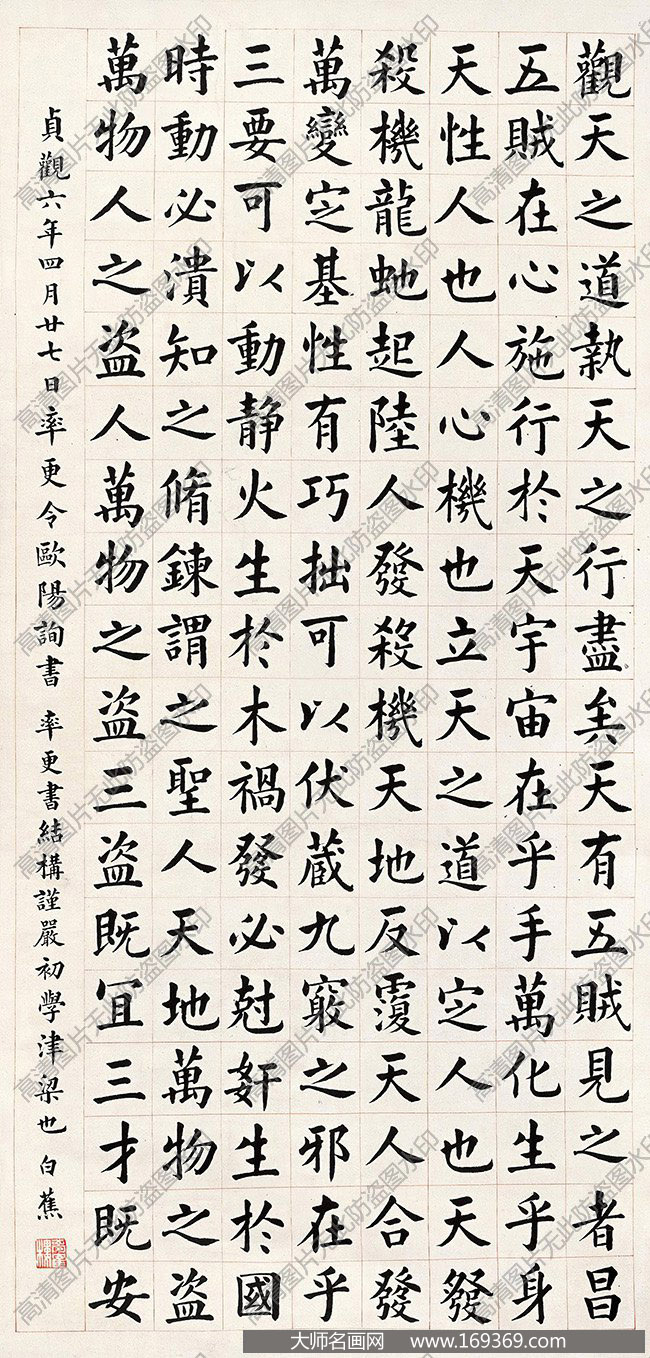 觀天之道執天之行盡矣天有五賊見之者昌
五賊在心施行於天宇宙在乎手萬化生乎身
天性人也人心機也立天之道以定人也天發
殺機龍虵起陸人發殺機天地反覆天人合發
萬變定基性有巧拙可以伏蔵九竅之邪在乎
三要可以動静火生於木禍發必尅姧生於國
時動必潰知之脩鍊謂之聖人天地萬物之盜
萬物人之盜人萬物之盜三盜既宜三才既安
貞觀六年四月廿七日率更令歐陽詢書 率更書結構謹嚴初學津梁也 白蕉
高清图片无此防盗图水印
大师名画网 www.169369.com